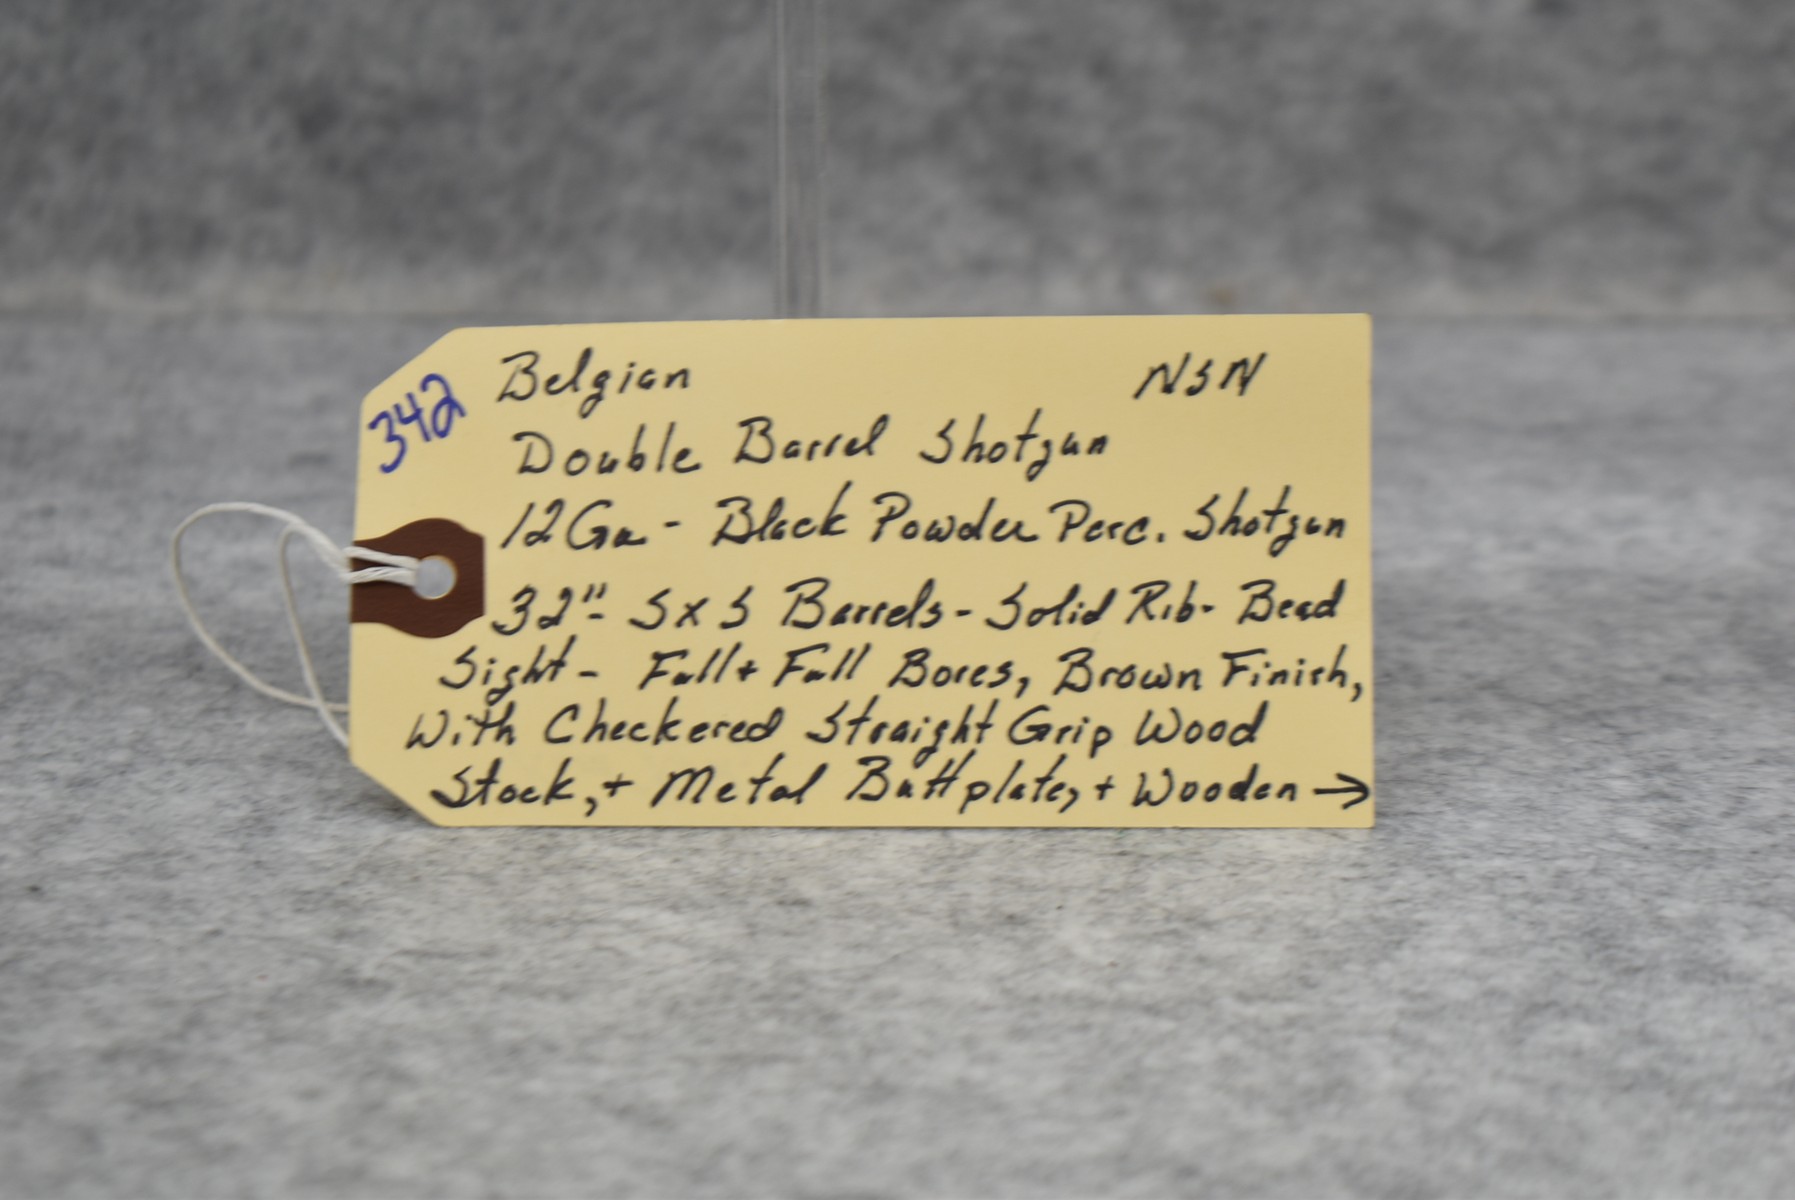 342
Belgian NSN
Double Barrel Shotgun
12 Ga - Black Powder Perc. Shotgun
32"- S x S Barrels - Solid Rib - Bead
Sight - Full + Full Bores, Brown Finish,
With Checkered Straight Grip Wood
Stock, + Metal Buttplate, + Wooden →